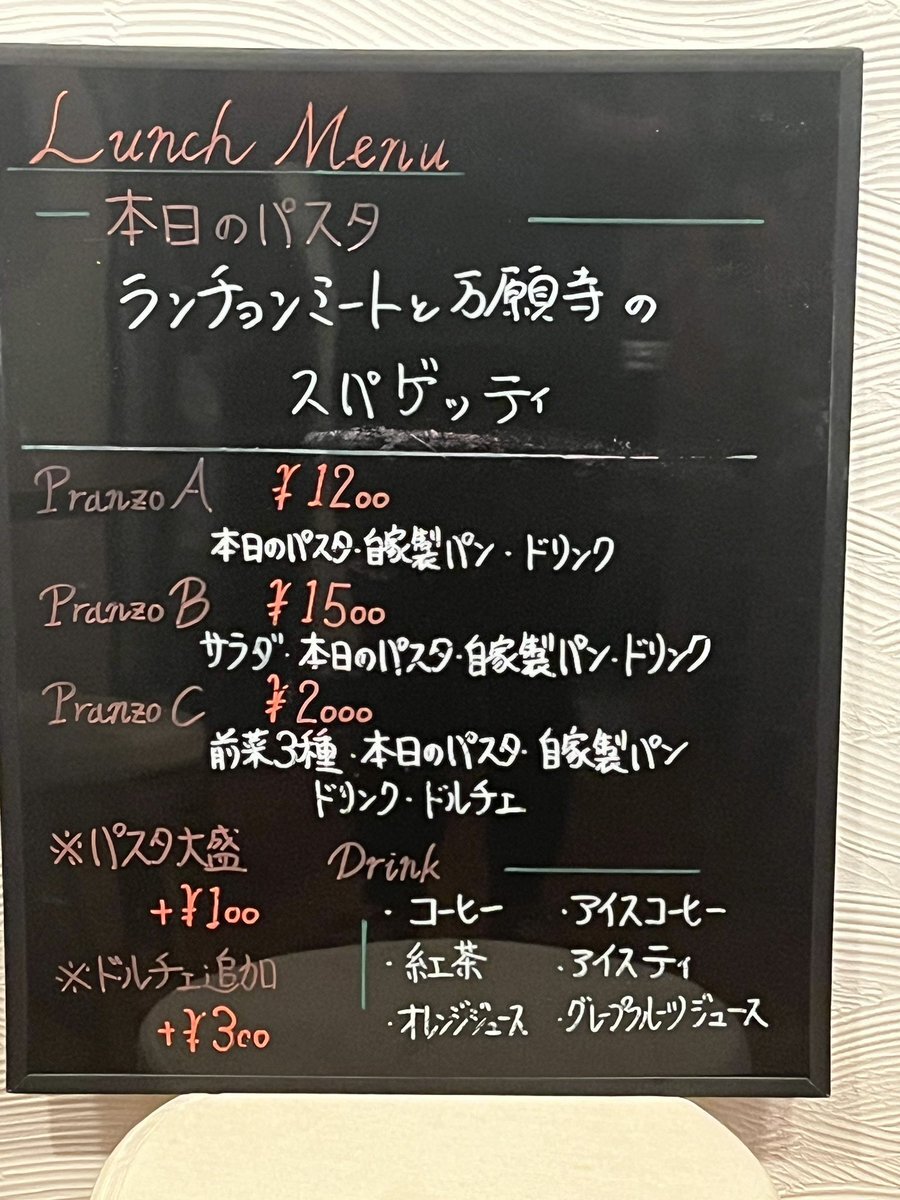 Lunch Menu
本日のパスタ
ランチョンミートと万願寺の
スパゲッティ
Pranzo A ¥1200
本日のパスタ・自家製パン・ドリンク
Pranzo B ¥1500
サラダ・本日のパスタ・自家製パン・ドリンク
Pranzo C ¥2000
前菜3種・本日のパスタ・自家製パン
ドリンク・ドルチェ
※パスタ大盛
+¥100
※ドルチェ追加
+¥300
Drink
・コーヒー ・アイスコーヒー
・紅茶 ・アイスティ
・オレンジジュース ・グレープフルーツジュース